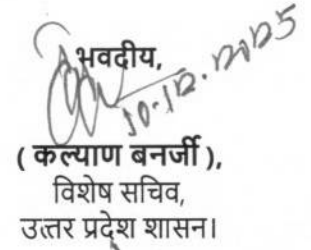 भवदीय,
10.12.2025
( कल्याण बनर्जी ),
विशेष सचिव,
उत्तर प्रदेश शासन।